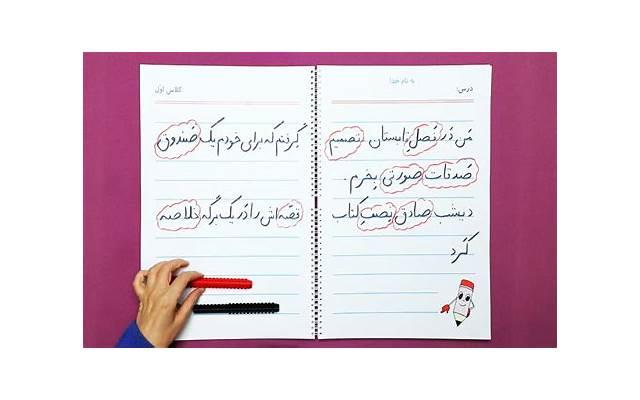 درس: به نام خدا کلاس اول:
مَن دَر فَصلِ تابستان تَصمیم گِرِفتَم که برای خودم یک صَندوق
صَدَقات صورَتی بِخرم .
دیشب صادِق نِصفِ کتاب قصّه اش را دَر یک برگه خُلاصه
کَرد